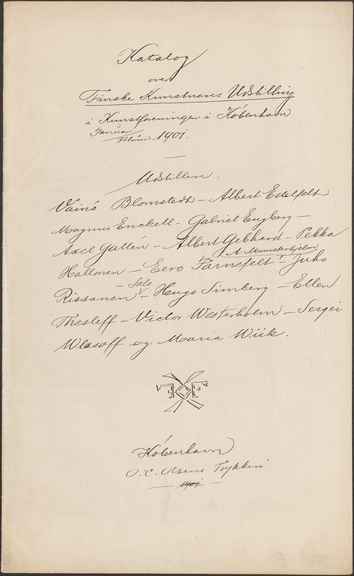 Katalog
over
Finske Kunstneres Udstilling
i Kunstforeningen i København
Januar
1901.
Udstillere.
Vainö Blomstedt – Albert Edelfelt
Magnus Enckell – Gabriel Engberg –
Axel Gallen – Albert Gebhard – Pekka
Halonen – Eero Järnefelt – Juho
Rissanen – Hugo Simberg – Ellen
Thesleff – Victor Westerholm – Sergei
Wlasoff og Maria Wiik.
København
O. C. Olsens Trykkeri
1901